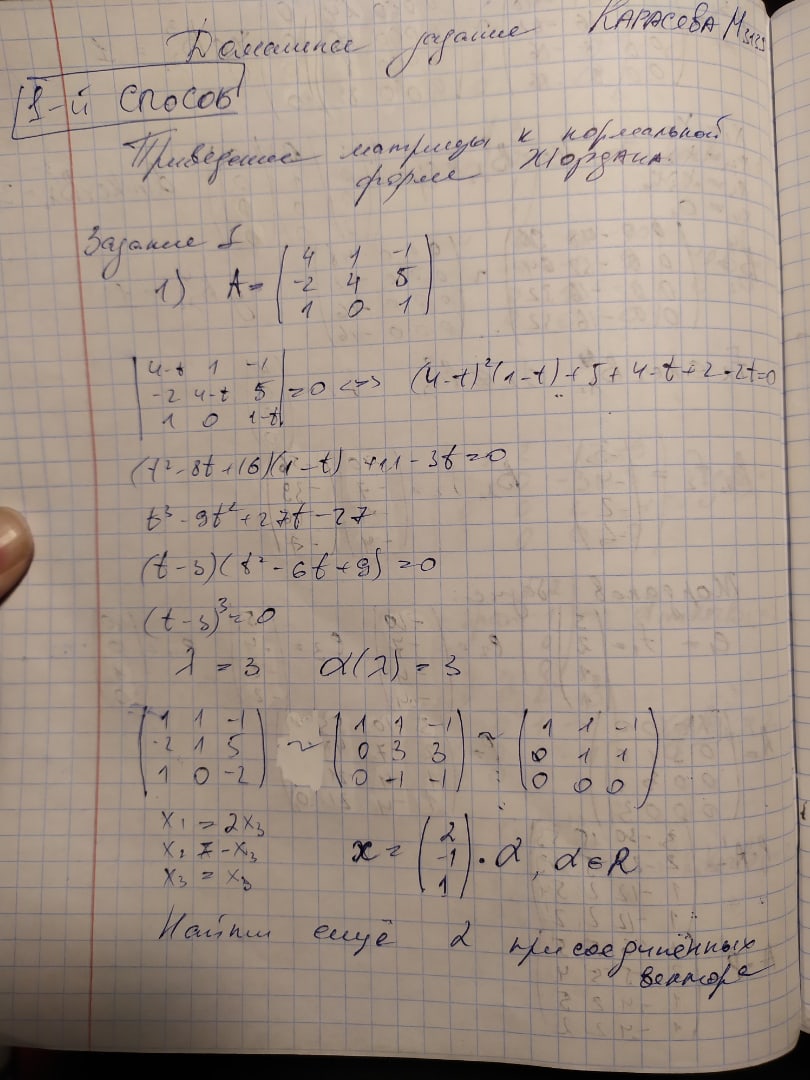 Домашнее задание КАРАСЕВА М3135
1-й СПОСОБ
Приведение матрицы к нормальной
форме Жордана.
Задание 1
1) A = ( 4 1 -1
-2 4 5
1 0 1 )
| 4-t 1 -1
-2 4-t 5
1 0 1-t | = 0 <=> (4-t)²(1-t)+5+4-t+2-2t=0
(t²-8t+16)(1-t) +11-3t=0
t³-9t²+27t-27
(t-3)(t²-6t+9)=0
(t-3)³=0
λ = 3 α(λ) = 3
( 1 1 -1
-2 1 5
1 0 -2 ) ~ ( 1 1 -1
0 3 3
0 -1 -1 ) ~ ( 1 1 -1
0 1 1
0 0 0 )
x₁ = 2x₃
x₂ = -x₃
x₃ = x₃
x = ( 2
-1
1 ) · α, α∈R
Найти ещё 2 присоединённых
вектора